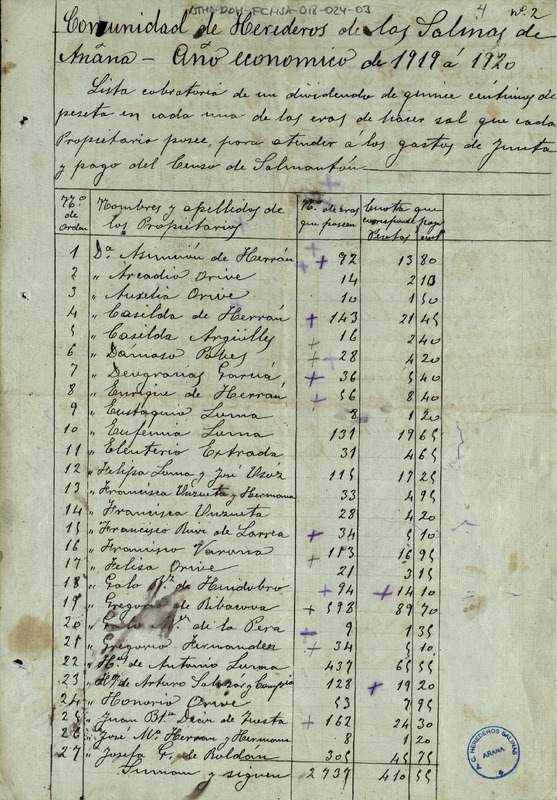 ATHA-DOH-FCHSA-018-024-03
4 nº. 2
Comunidad de Herederos de las Salinas de
Añana - Año economico de 1919 á 1920
Lista cobratoria de un dividendo de quince céntimos de
peseta en cada una de las eras de hacer sal que cada
Propietario posee, para atender á los gastos de Junta
y pago del Censo de Salmantón
Nº. de Orden Nombres y apellidos de los Propietarios Nº. de eras que poseen Cuota que corresponde pagar Pesetas Cent
1 Dª. Asunción de Herrán + 92 13 80
2 " Arcadio Orive 14 2 10
3 " Auxilia Orive 10 1 50
4 " Casilda de Herrán + 143 21 45
5 " Casilda Argüelles + 16 2 40
6 " Damaso Bibes + 28 4 20
7 " Deogracias García + 36 5 40
8 " Enrique de Herrán + 56 8 40
9 " Eustaquio Luma 8 1 20
10 " Eufemia Luma 131 19 65
11 " Eleuterio Extrada 31 4 65
12 " Felipa Luma y José Usóz 115 17 25
13 " Francisca Unzueta y Hermana 33 4 95
14 " Francisca Unzueta 28 4 20
15 " Francisco Ruiz de Larrea + 34 5 10
16 " Francisco Varona + 113 16 95
17 " Felisa Orive 21 3 15
18 " Galo Mz. de Huidobro + 94 + 14 10
19 " Gregorio de Ribacova + 598 89 70
20 " Galo Mz. de la Pera 9 1 35
21 " Gregorio Hernandez + 34 5 10
22 " Hos. de Antonio Luma 437 65 55
23 " Hos. de Arturo Salazár y Compía 128 + 19 20
24 " Honorio Orive 53 7 95
25 " Juan Bta. Dicar de Zuesta + 162 24 30
26 " José Mª. Herran y Hermana 8 1 20
27 " Josefa G. de Roldán 305 45 75
Suman y siguen 2737 410 55
C. HEREDEROS SALINAS
AÑANA